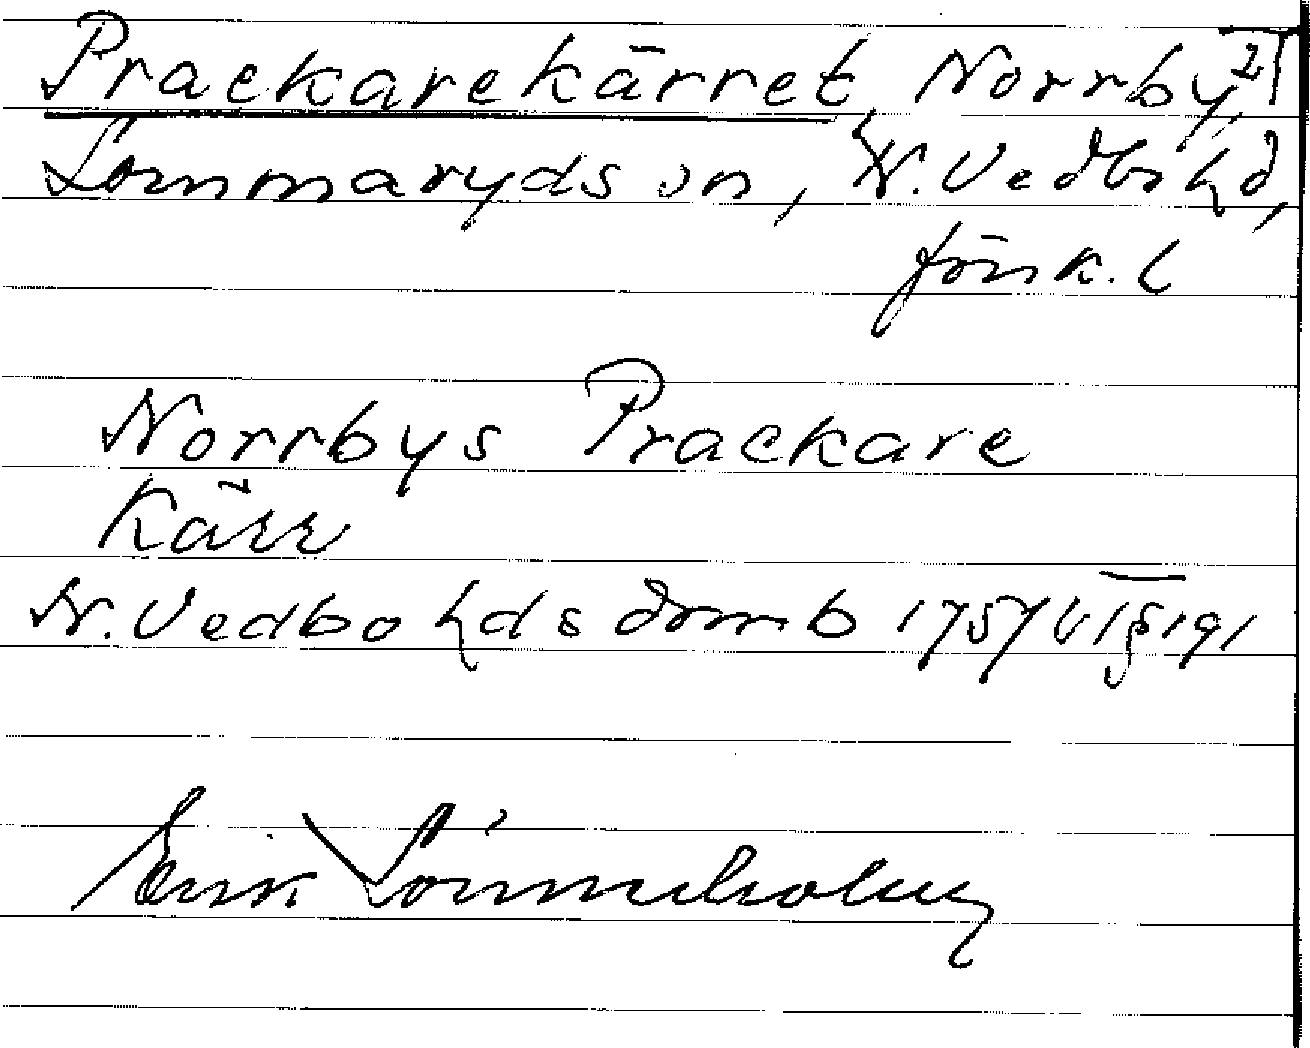 Prackarekärret, Norrby, 2
Lommaryds sn, N. Vedbo hd,
Jönk. l
Norrbys Prackare
Kärr
N. Vedbo hds domb 1757 VI § 191
Erik Lönneholm